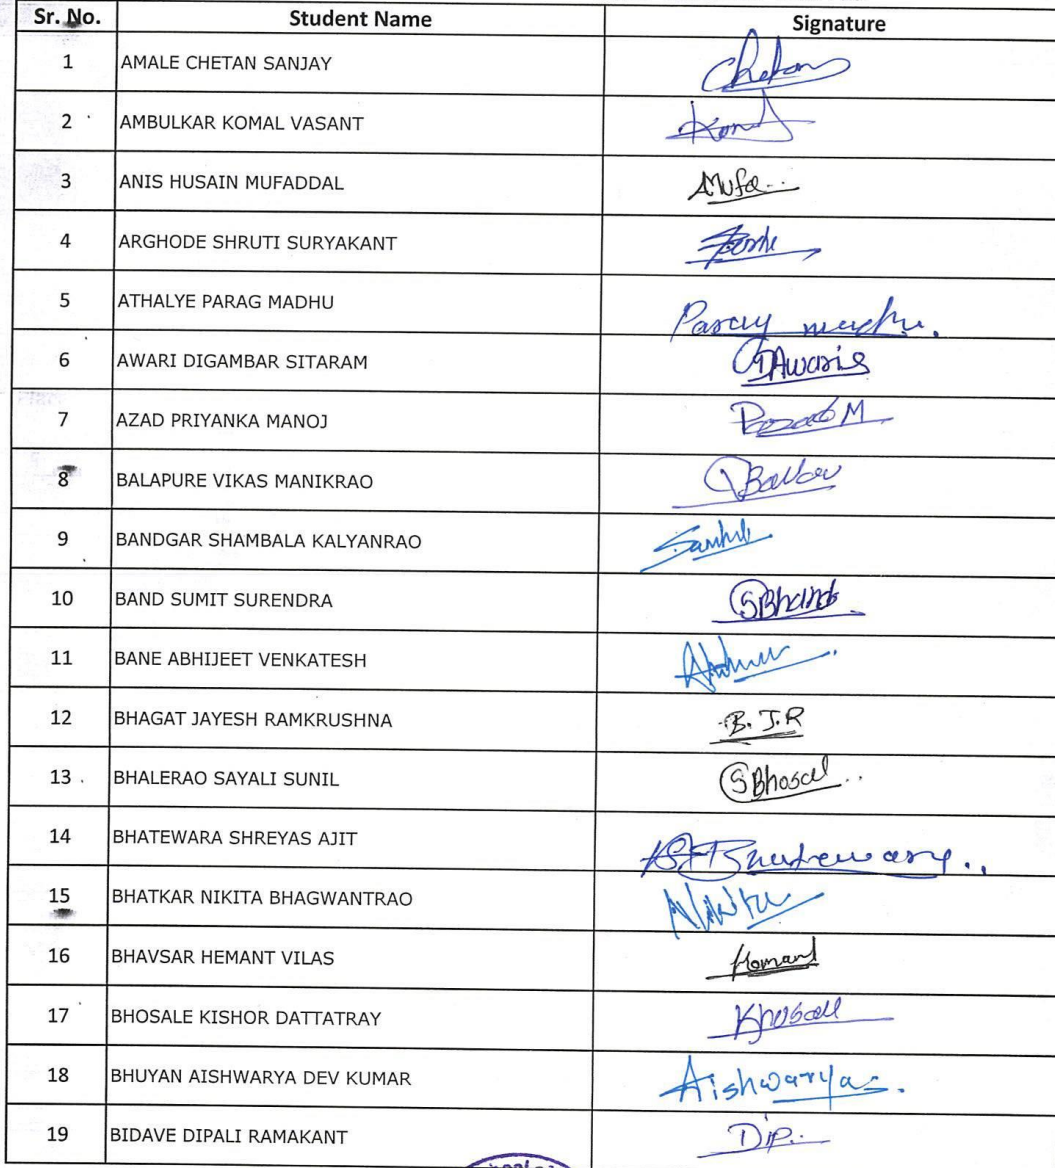 Sr. No. Student Name Signature
1 AMALE CHETAN SANJAY Chetan
2 AMBULKAR KOMAL VASANT Komal
3 ANIS HUSAIN MUFADDAL AMufa..
4 ARGHODE SHRUTI SURYAKANT
5 ATHALYE PARAG MADHU Parag madhu.
6 AWARI DIGAMBAR SITARAM
7 AZAD PRIYANKA MANOJ
8 BALAPURE VIKAS MANIKRAO
9 BANDGAR SHAMBALA KALYANRAO
10 BAND SUMIT SURENDRA SBhand
11 BANE ABHIJEET VENKATESH
12 BHAGAT JAYESH RAMKRUSHNA B. J. R
13 BHALERAO SAYALI SUNIL SBhosal..
14 BHATEWARA SHREYAS AJIT
15 BHATKAR NIKITA BHAGWANTRAO Nikita
16 BHAVSAR HEMANT VILAS Hemant
17 BHOSALE KISHOR DATTATRAY
18 BHUYAN AISHWARYA DEV KUMAR Aishwarya
19 BIDAVE DIPALI RAMAKANT Dip..